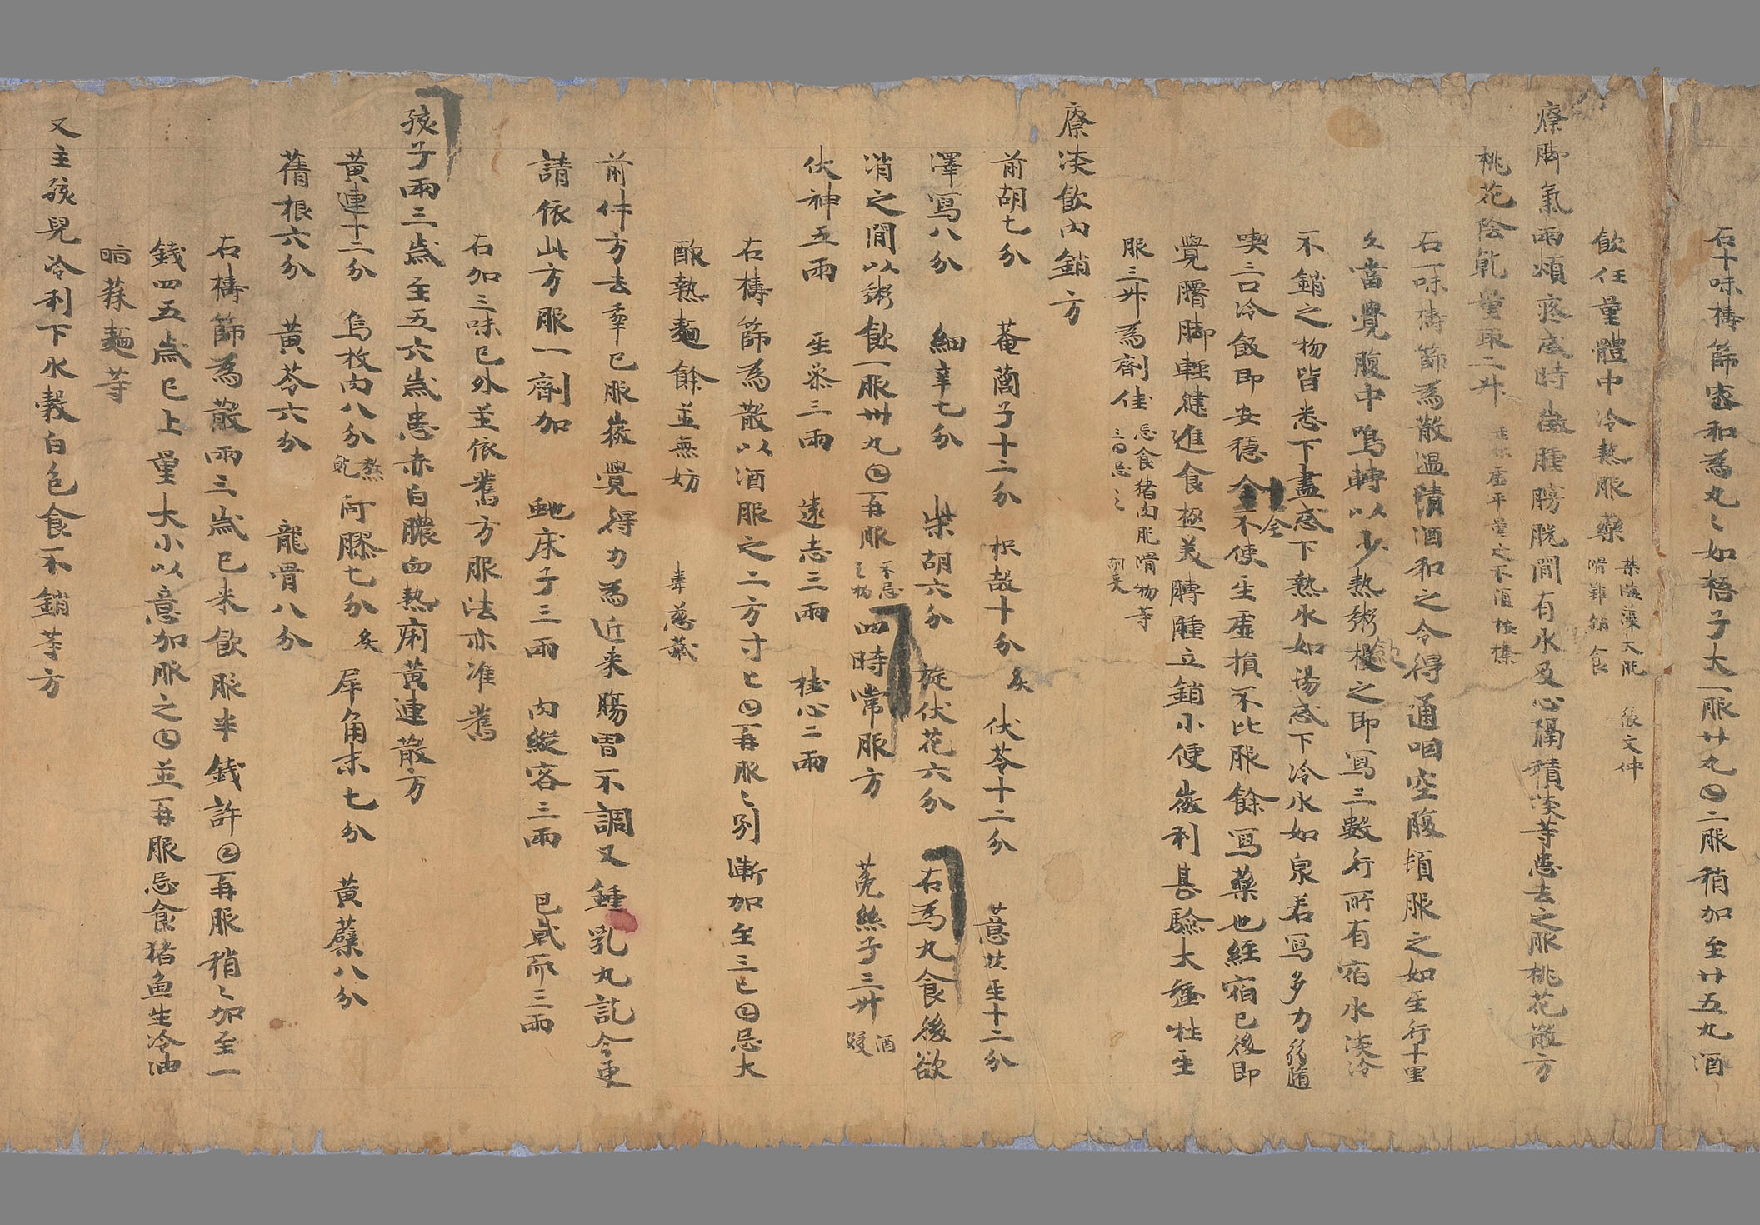 右十味擣篩蜜和為丸〻如梧子大一服廿丸日二服稍加至廿五丸酒
飲任量體中冷熱服藥
張文仲
療脚氣兩煩疼或時微腫膀胱間有水及心膈積淡等患去之服桃花散方
桃花陰乾量取二升
右一味擣篩為散溫清酒和之令得通咽空腹頓服之如至行十里
久當覺腹中鳴轉以少熱粥投之即寫三數行所有宿水淡冷
不銷之物皆悉下盡或下熱水如湯或下冷水如泉若寫多力
喫三口冷飯即安穩全不使至虛損不比服餘寫藥也經宿已後即
覺𦡀脚輕揵進食極美𦢊腫立銷小便微利甚驗大
服三升為劑佳 忌食猪肉肥滑物等
三日忌之
療淡飲內銷方
前胡七分 菴䕡子十二分 枳殼十分炙 伏苓十二分
澤寫八分 細辛七分 柴胡六分 旋伏花六分 右為丸食後欲
消之間以粥飲一服卅丸日再服 四時常服方 菟絲子三升
伏神五兩 遠志三兩 桂心二兩
右擣篩為散以酒服之二方寸匕日再服〻別漸加至三匕日忌大
酢熱麵餘並無妨
前件方去年已服微覺得力為近來腸胃不調又鍾乳丸訖今更
請依此方服一劑加 虵床子三兩 肉縱容三兩 巴戟𠀚三兩
右加三味已外並依舊方服法亦准舊
孩子兩三歲至五六歲患赤白膿血熱痢黃連散方
黃連十二分 烏枚肉八分熬乾 阿膠七分炙 犀角末七分 黃蘗八分
蒨根六分 黃芩六分 龍骨八分
右擣篩為散兩三歲已來飲服半錢許日再服稍〻加至一
錢四五歲已上量大小以意加服之日並再服忌食猪魚生冷油
䐿蒜麵等
又主孩兒冷利下水穀白色食不銷等方